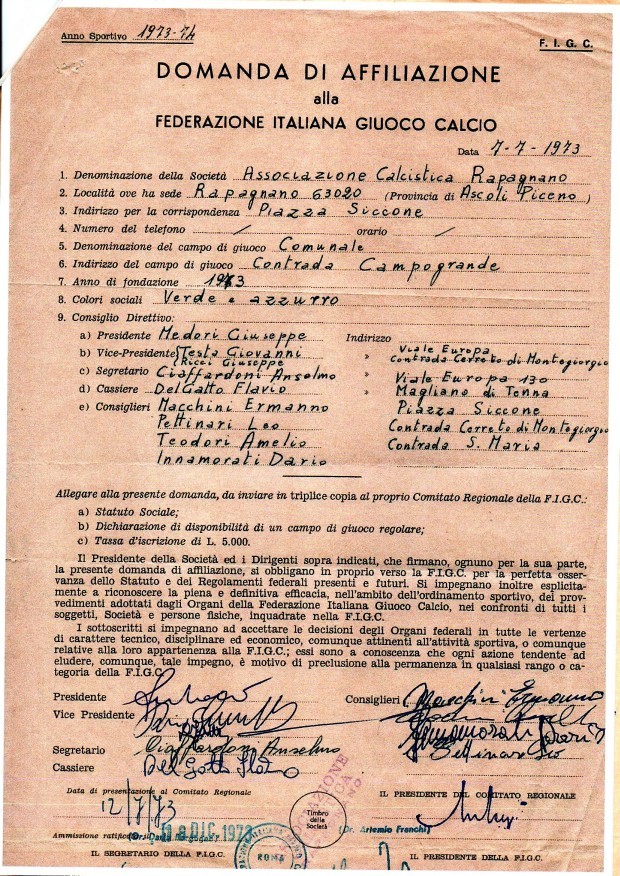 Anno Sportivo 1973-74
F. I. G. C.
DOMANDA DI AFFILIAZIONE
alla
FEDERAZIONE ITALIANA GIUOCO CALCIO
Data 7-7-1973
1. Denominazione della Società Associazione Calcistica Rapagnano
2. Località ove ha sede Rapagnano 63020 (Provincia di Ascoli Piceno)
3. Indirizzo per la corrispondenza Piazza Siccone
4. Numero del telefono / orario /
5. Denominazione del campo di giuoco Comunale
6. Indirizzo del campo di giuoco Contrada Campogrande
7. Anno di fondazione 1973
8. Colori sociali Verde e azzurro
9. Consiglio Direttivo:
a) Presidente Medori Giuseppe Indirizzo
b) Vice-Presidente Testa Giovanni » Viale Europa
Ricci Giuseppe Contrada Cerreto di Montegiorgio
c) Segretario Ciaffardoni Anselmo » Viale Europa 130
d) Cassiere Del Gatto Flavio » Magliano di Tenna
e) Consiglieri Macchini Ermanno Piazza Siccone
Pettinari Leo Contrada Cerreto di Montegiorgio
Teodori Amelio Contrada S. Maria
Innamorati Dario
Allegare alla presente domanda, da inviare in triplice copia al proprio Comitato Regionale della F.I.G.C.:
a) Statuto Sociale;
b) Dichiarazione di disponibilità di un campo di giuoco regolare;
c) Tassa d'iscrizione di L. 5.000.
Il Presidente della Società ed i Dirigenti sopra indicati, che firmano, ognuno per la sua parte,
la presente domanda di affiliazione, si obbligano in proprio verso la F.I.G.C. per la perfetta osser-
vanza dello Statuto e dei Regolamenti federali presenti e futuri. Si impegnano inoltre esplicita-
mente a riconoscere la piena e definitiva efficacia, nell'ambito dell'ordinamento sportivo, dei prov-
vedimenti adottati dagli Organi della Federazione Italiana Giuoco Calcio, nei confronti di tutti i
soggetti, Società e persone fisiche, inquadrate nella F.I.G.C.
I sottoscritti si impegnano ad accettare le decisioni degli Organi federali in tutte le vertenze
di carattere tecnico, disciplinare ed economico, comunque attinenti all'attività sportiva, o comunque
relative alla loro appartenenza alla F.I.G.C.; essi sono a conoscenza che ogni azione tendente ad
eludere, comunque, tale impegno, è motivo di preclusione alla permanenza in qualsiasi rango o ca-
tegoria della F.I.G.C.
Presidente Consiglieri Macchini Ermanno
Vice Presidente
Innamorati Dario
Segretario Ciaffardoni Anselmo Pettinari Leo
Cassiere Del Gatto Flavio
Data di presentazione al Comitato Regionale IL PRESIDENTE DEL COMITATO REGIONALE
12/7/73
Timbro della Società
Ammissione ratificata DIC. 1973 (Dr. Artemio Franchi)
ROMA
IL SEGRETARIO DELLA F.I.G.C. IL PRESIDENTE DELLA F.I.G.C.